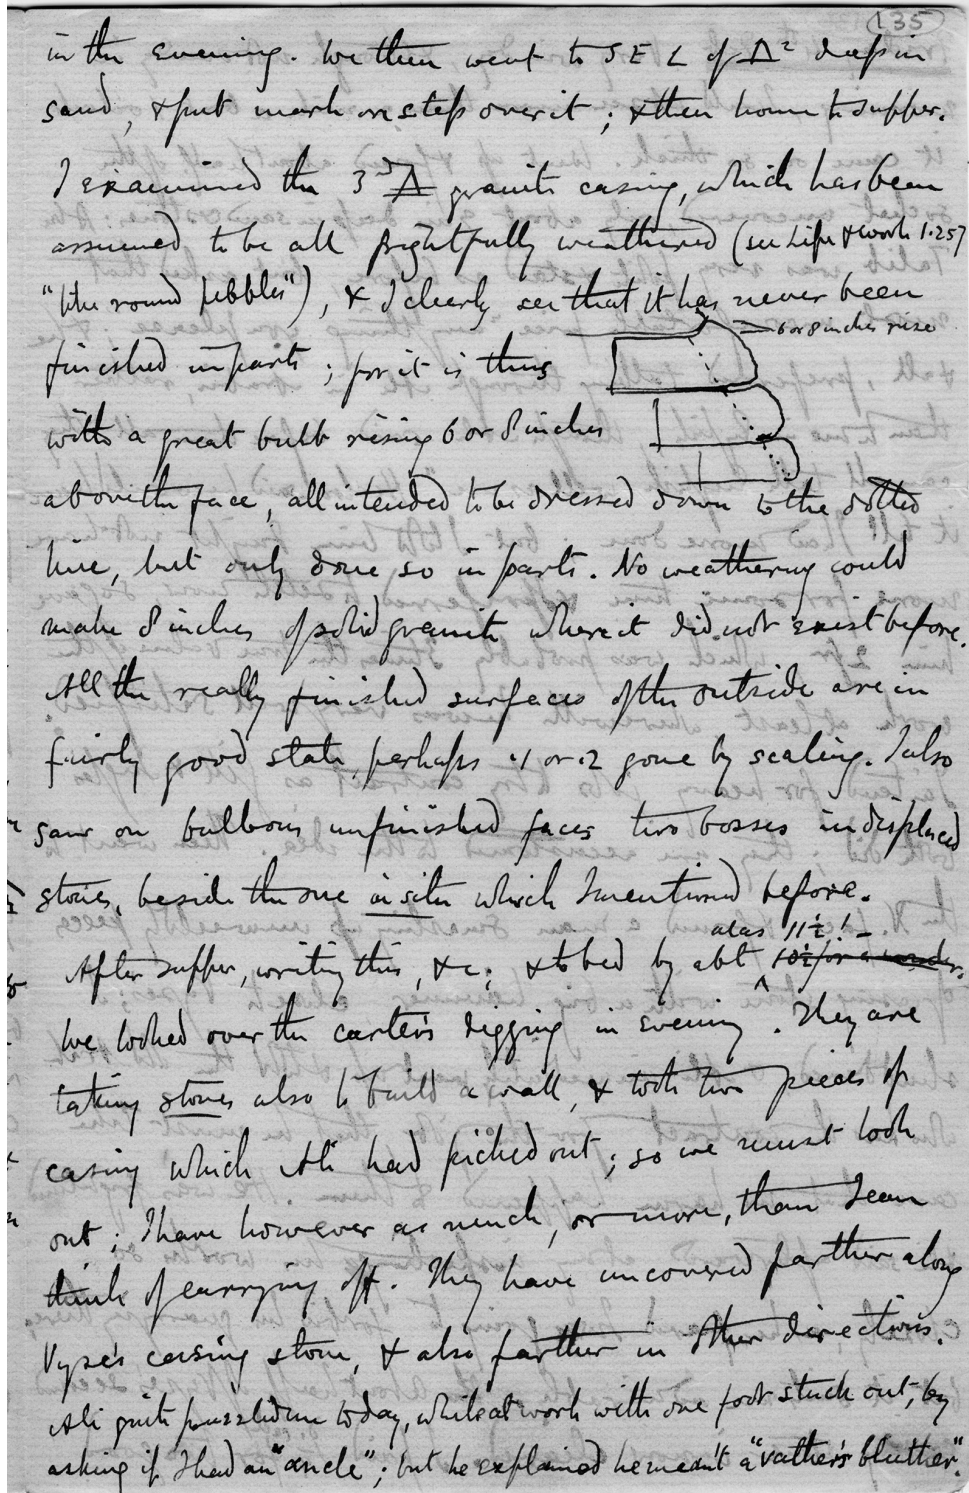 135
in the evening. We then went to S E ∠ of Δ² deep in
sand, & put mark on step over it; & then home to supper.
I examined the 3rd Δ granite casing, which has been
assumed to be all frightfully weathered (see Life & Work 1.257
"like round pebbles"), & I clearly see that it has never been
6 or 8 inches rise
finished in parts; for it is thus
with a great bulb rising 6 or 8 inches
above the face, all intended to be dressed down to the dotted
line, but only done so in parts. No weathering could
make 8 inches of solid granite where it did not exist before.
All the really finished surfaces of the outside are in
fairly good state, perhaps .1 or .2 gone by scaling. I also
saw on bulbous unfinished faces two bosses in displaced
stones, beside the one in situ which I mentioned before.
alas 11½! –
After supper, writing this, &c; & to bed by abt 10½ for a wonder.
We looked over the carters digging in evening. They are
taking stones also to build a wall, & took two pieces of
casing which Ali had picked out; so we must look
out; I have however as much, or more, than I can
think of carrying off. They have uncovered farther along
Vyse's casing stone, & also farther in other directions.
Ali quite puzzled me today, while at work with one foot stuck out, by
asking if I had an "ancle"; but he explained he meant a "vather's bluther".